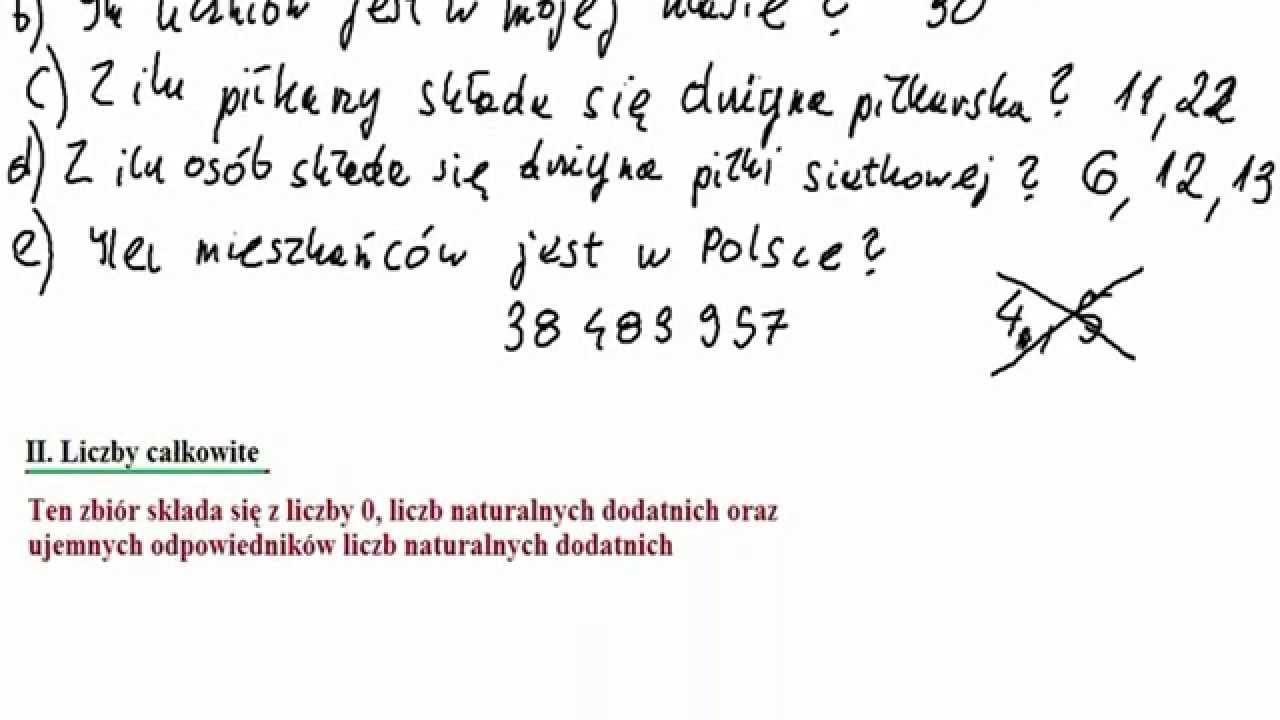 b) Ilu uczniów jest w mojej klasie? 30
c) Z ilu piłkarzy składa się drużyna piłkarska? 11, 22
d) Z ilu osób składa się drużyna piłki siatkowej? 6, 12, 13
e) Ilu mieszkańców jest w Polsce?
38 483 957
4,1 5
II. Liczby całkowite
Ten zbiór składa się z liczby 0, liczb naturalnych dodatnich oraz
ujemnych odpowiedników liczb naturalnych dodatnich